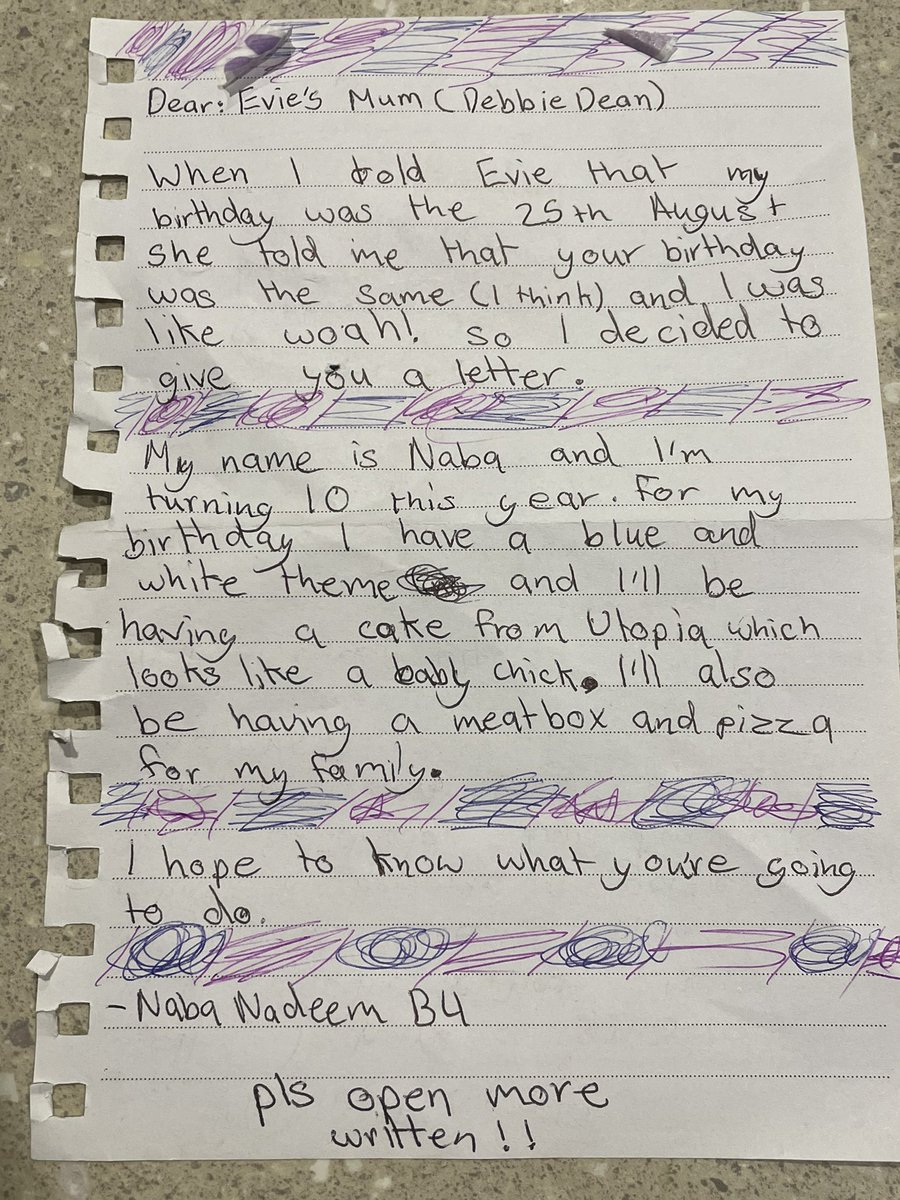 Dear: Evie's Mum (Debbie Dean)
When I told Evie that my
birthday was the 25th August
she told me that your birthday
was the same (I think) and I was
like woah! so I decided to
give you a letter.
My name is Naba and I'm
turning 10 this year. For my
birthday I have a blue and
white theme and I'll be
having a cake from Utopia which
looks like a baby chick. I'll also
be having a meatbox and pizza
for my family.
I hope to know what you're going
to do.
- Naba Nadeem B4
pls open more
written!!